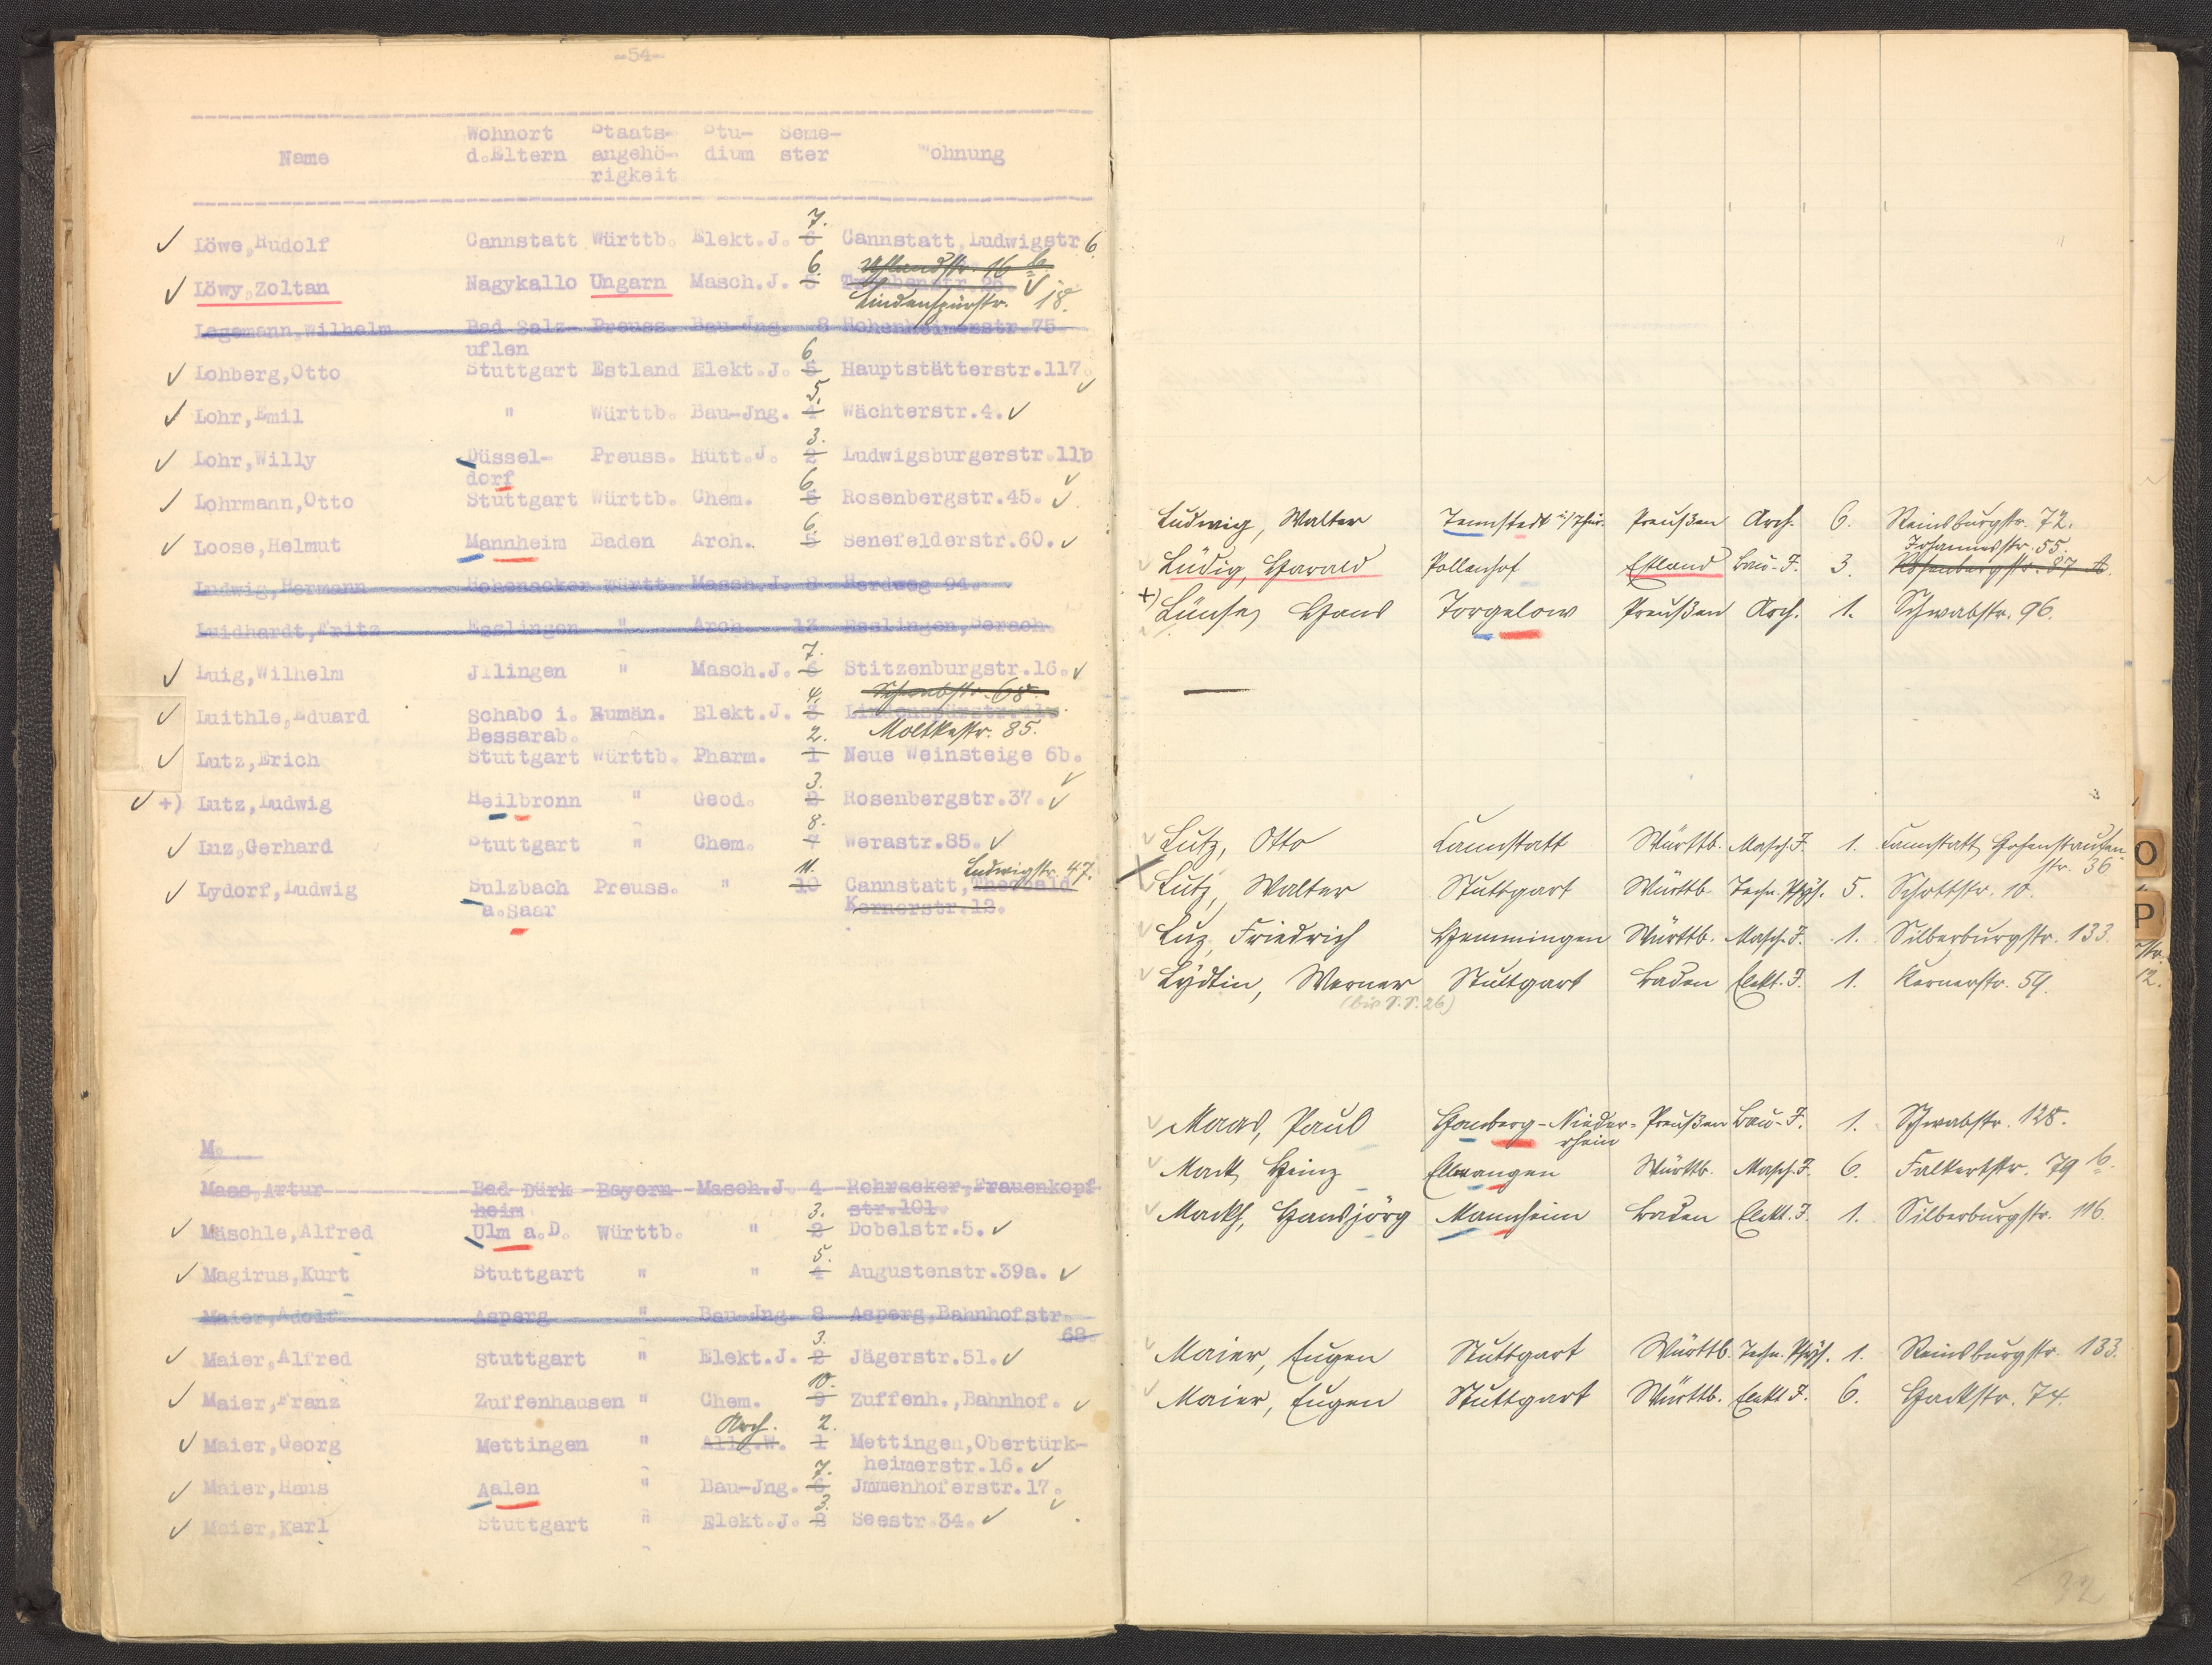 -54-
Wohnort Staats- Stu- Seme-
Name d.Eltern angehö- dium ster Wohnung
rigkeit
7.
✓ Löwe,Rudolf Cannstatt Württb. Elekt.J. 6 Cannstatt,Ludwigstr 6.
6. Uhlandstr. 16 b.
✓ Löwy,Zoltan Nagykallo Ungarn Masch.J. 5 ✓
Lindenspürstr. 18.
Logemann,Wilhelm Bad Salz- Preuss. Bau-Jng. 8 Hohenheimerstr.75.
uflen
6.
✓ Lohberg,Otto Stuttgart Estland Elekt.J. 5 Hauptstätterstr.117. ✓
5.
✓ Lohr,Emil " Württb. Bau-Jng. 4 Wächterstr.4. ✓
3.
✓ Lohr,Willy Düssel- Preuss. Hütt.J. 2 Ludwigsburgerstr.11b ✓
dorf
6.
✓ Lohrmann,Otto Stuttgart Württb. Chem. 5 Rosenbergstr.45. ✓
6.
✓ Loose,Helmut Mannheim Baden Arch. 5 Senefelderstr.60. ✓
Ludwig,Hermann Hohenacker Württ. Masch.J. 8 Herdweg 94.
Luidhardt,Fritz Esslingen " Arch. 13 Esslingen,Serach.
7.
✓ Luig,Wilhelm Jllingen " Masch.J. 6 Stitzenburgstr.16. ✓
4. Schwabstr. 68.
✓ Luithle,Eduard Schabo i. Rumän. Elekt.J. 3 Lindenspürstr.
Bessarab. Moltkestr. 85.
2.
✓ Lutz,Erich Stuttgart Württb. Pharm. 1 Neue Weinsteige 6b. ✓
3.
✓ +) Lutz,Ludwig Heilbronn " Geod. 2 Rosenbergstr.37. ✓
8.
✓ Luz,Gerhard Stuttgart " Chem. 7 Werastr.85. ✓
11. Ludwigstr. 47.
✓ Lydorf,Ludwig Sulzbach Preuss. " 10 Cannstatt,Theobald
a.Saar Kernerstr.12.
M.
Maas,Artur Bad Dürk- Bayern Masch.J. 4 Rohracker,Frauenkopf
heim str.101.
3.
✓ Mäschle,Alfred Ulm a.D. Württb. " 2 Dobelstr.5. ✓
5.
✓ Magirus,Kurt Stuttgart " " 4 Augustenstr.39a. ✓
Maier,Adolf Asperg " Bau-Jng. 8 Asperg,Bahnhofstr.
68
3.
✓ Maier,Alfred Stuttgart " Elekt.J. 2 Jägerstr.51. ✓
10.
✓ Maier,Franz Zuffenhausen " Chem. 9 Zuffenh.,Bahnhof. ✓
Arch. 2.
✓ Maier,Georg Mettingen " Allg.W. 1 Mettingen,Obertürk-
heimerstr.16. ✓
7.
✓ Maier,Hans Aalen " Bau-Jng. 6 Jmmenhoferstr.17. ✓
3.
✓ Maier,Karl Stuttgart " Elekt.J. 2 Seestr.34. ✓
Ludwig, Walter Tennstedt i/Thür. Preußen Arch. 6. Reinsburgstr. 72.
Johannesstr. 55.
Lüdig, Harald Pollenhof Estland Bau-J. 3. Rosenbergstr. 87 A.
+) Lünse, Hans Torgelow Preußen Arch. 1. Schwabstr. 96.
Lutz, Otto Cannstatt Württb. Masch.J. 1. Cannstatt, Hohenstaufen-
str. 36
Lutz, Walter Stuttgart Württb. Techn. Phys. 5. Schottstr. 10.
Luz, Friedrich Hemmingen Württb. Masch.J. 1. Silberburgstr. 133.
Lydtin, Werner Stuttgart Baden Elekt.J. 1. Kernerstr. 59.
(bis S.S. 26)
Maas, Paul Homberg-Nieder- Preußen Bau-J. 1. Schwabstr. 128.
rhein
Mack, Heinz Ellwangen Württb. Masch.J. 6. Falkertstr. 79 b.
Mackh, Hansjörg Mannheim Baden Elekt.J. 1. Silberburgstr. 116.
Maier, Eugen Stuttgart Württb. Techn. Phys. 1. Reinsburgstr. 133.
Maier, Eugen Stuttgart Württb. Elekt.J. 6. Hackstr. 74.
O
P
str.
12.
32